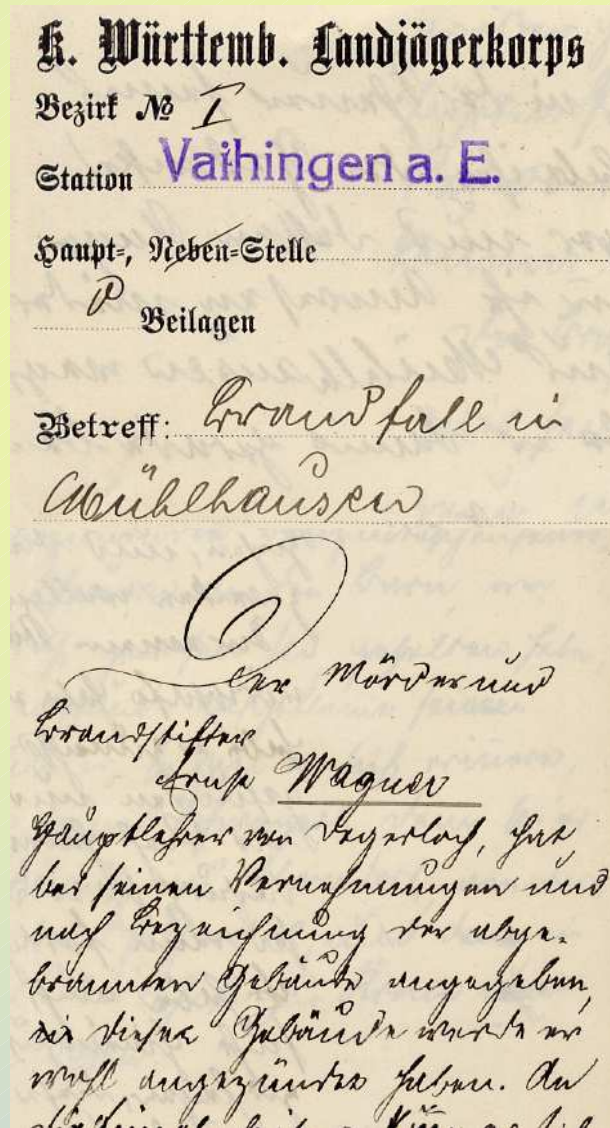 K. Württemb. Landjägerkorps
Bezirk № I
Station Vaihingen a. E.
Haupt-, Neben-Stelle
Beilagen
Betreff: Brandfall in
Mühlhausen
Der Mörder und
Brandstifter
Ernst Wagner
Hauptlehrer von Degerloch, hat
bei seinen Vernehmungen und
nach Bezeichnung der abge-
brannten Gebäude angegeben,
diese Gebäude werde er
wohl angezündet haben. An